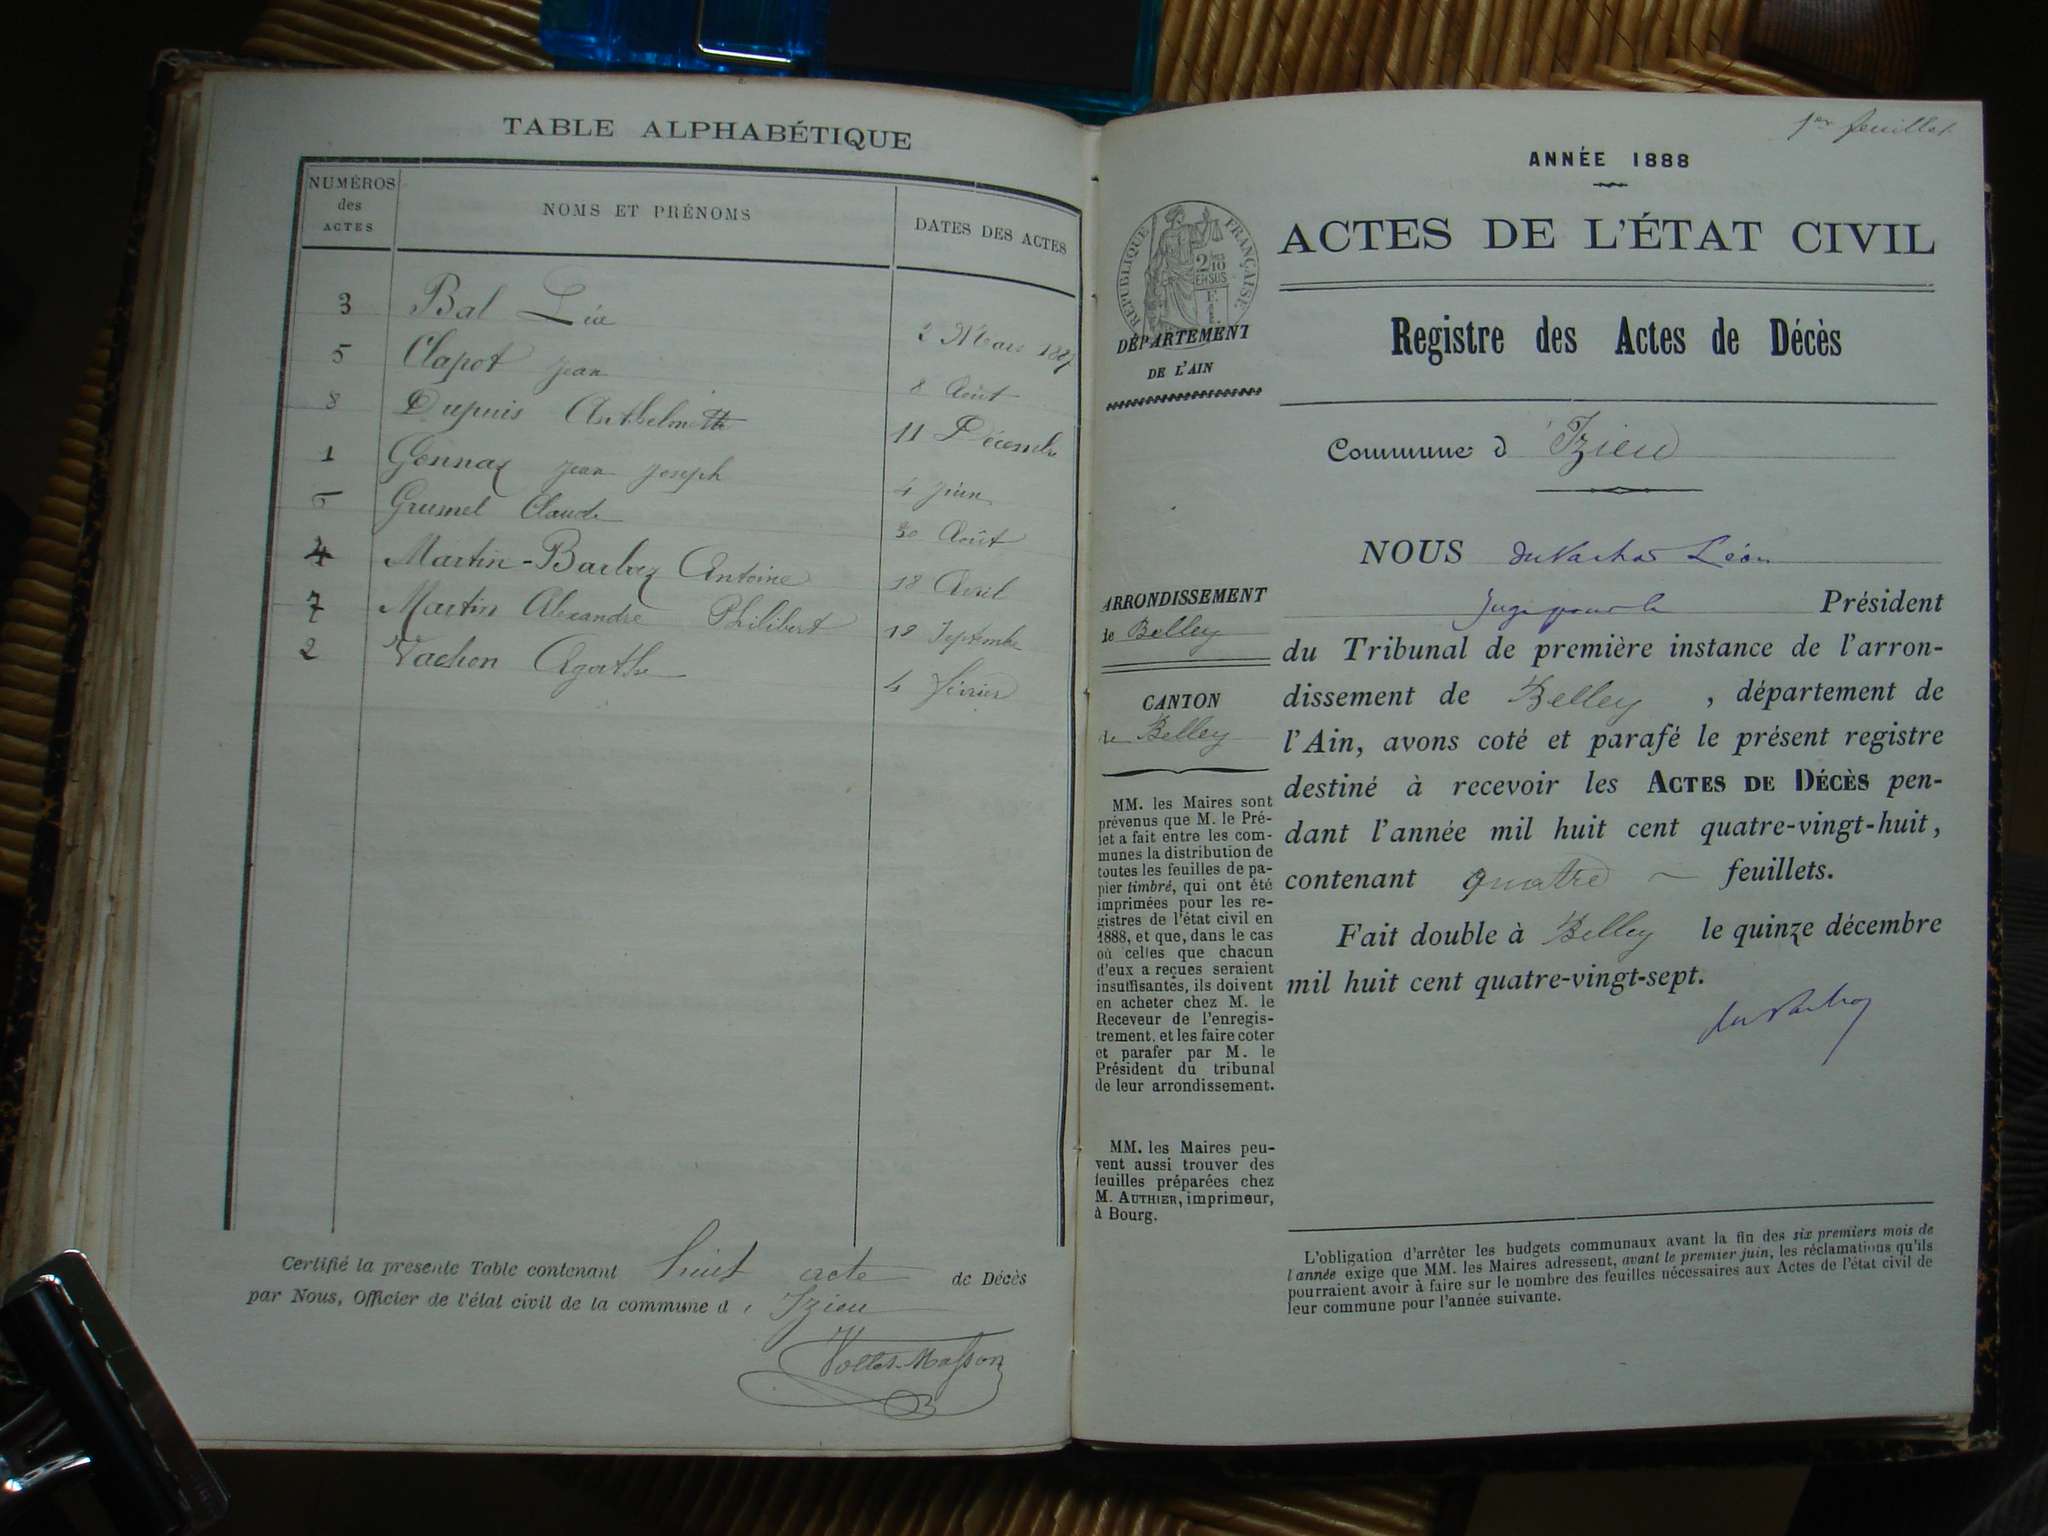 TABLE ALPHABÉTIQUE
NUMÉROS des ACTES
NOMS ET PRÉNOMS
DATES DES ACTES
3 Bal Léa Mars 1887
5 Clapot Jean 8 Août
8 Dupuis Anthelmette 11 Décembre
1 Gonnaz Jean Joseph 4 Juin
6 Grumel Claude 30 Août
4 Martin-Barbaz Antoine 18 Avril
7 Martin Alexandre Philibert 19 Septembre
2 Vachon Agathe 4 février
Certifié la présente Table contenant huit acte de Décès
par Nous, Officier de l'état civil de la commune d'Izieu
1er feuillet
ANNÉE 1888
RÉPUBLIQUE FRANÇAISE
ACTES DE L'ÉTAT CIVIL
DÉPARTEMENT
DE L'AIN
Registre des Actes de Décès
Commune d'Izieu
NOUS Léon
Juge pour le Président
du Tribunal de première instance de l'arron-
dissement de Belley, département de
l'Ain, avons coté et parafé le présent registre
destiné à recevoir les ACTES DE DÉCÈS pen-
dant l'année mil huit cent quatre-vingt-huit,
contenant quatre feuillets.
Fait double à Belley le quinze décembre
mil huit cent quatre-vingt-sept.
ARRONDISSEMENT
de Belley
CANTON
de Belley
MM. les Maires sont
prévenus que M. le Pré-
fet a fait entre les com-
munes la distribution de
toutes les feuilles de pa-
pier timbré, qui ont été
imprimées pour les re-
gistres de l'état civil en
1888, et que, dans le cas
où celles que chacun
d'eux a reçues seraient
insuffisantes, ils doivent
en acheter chez M. le
Receveur de l'enregis-
trement, et les faire coter
et parafer par M. le
Président du tribunal
de leur arrondissement.
MM. les Maires peu-
vent aussi trouver des
feuilles préparées chez
M. AUTHIER, imprimeur,
à Bourg.
L'obligation d'arrêter les budgets communaux avant la fin des six premiers mois de
l'année exige que MM. les Maires adressent, avant le premier juin, les réclamations qu'ils
pourraient avoir à faire sur le nombre des feuilles nécessaires aux Actes de l'état civil de
leur commune pour l'année suivante.